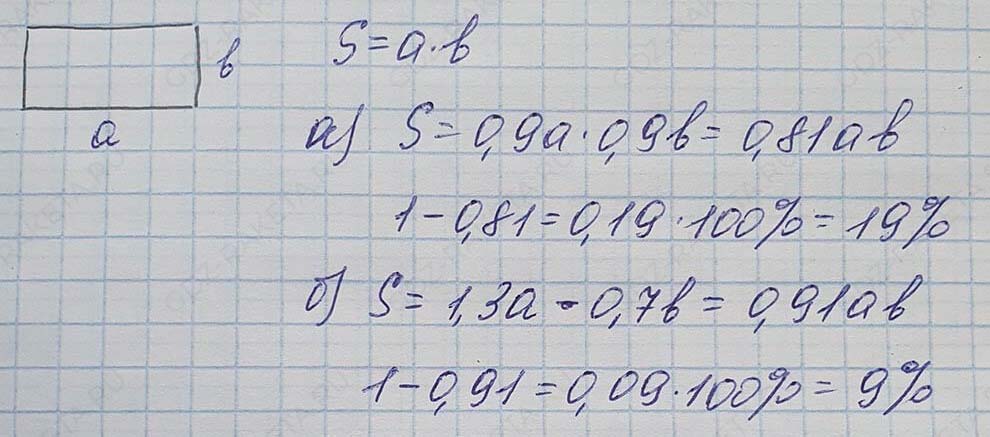 S = a · b
b
a
а) S = 0,9a · 0,9b = 0,81ab
1 - 0,81 = 0,19 · 100% = 19%
б) S = 1,3a - 0,7b = 0,91ab
1 - 0,91 = 0,09 · 100% = 9%